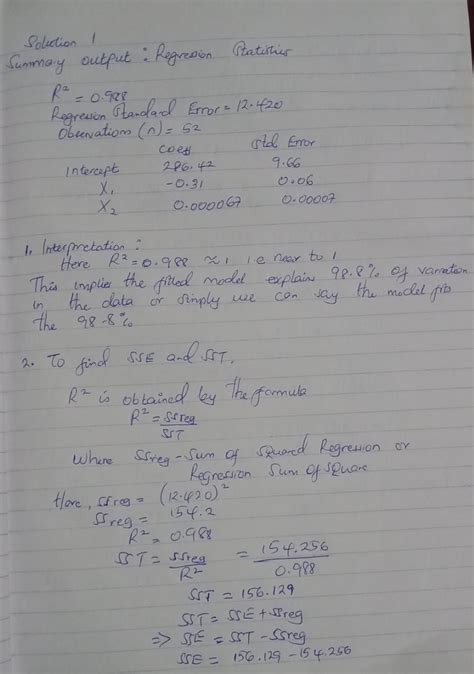 Solution 1
Summary output : Regression Statistics
R² = 0.988
Regression Standard Error = 12.420
Observations (n) = 52
coeff Std. Error
Intercept 286.42 9.66
X₁ -0.31 0.06
X₂ 0.000067 0.00007
1. Interpretation :
Here R² = 0.988 ≈ 1 i.e near to 1
This implies the fitted model explain 98.8% of variation
in the data or simply we can say the model fits
the 98.8%
2. To find SSE and SST.
R² is obtained by the formula
R² = SSreg
SST
Where SSreg - Sum of Squared Regression or
Regression Sum of Square
Here, SSreg = (12.420)²
SSreg = 154.2
R² = 0.988
SST = SSreg = 154.256
R² 0.988
SST = 156.129
SST = SSE + SSreg
⇒ SSE = SST - SSreg
SSE = 156.129 - 154.256